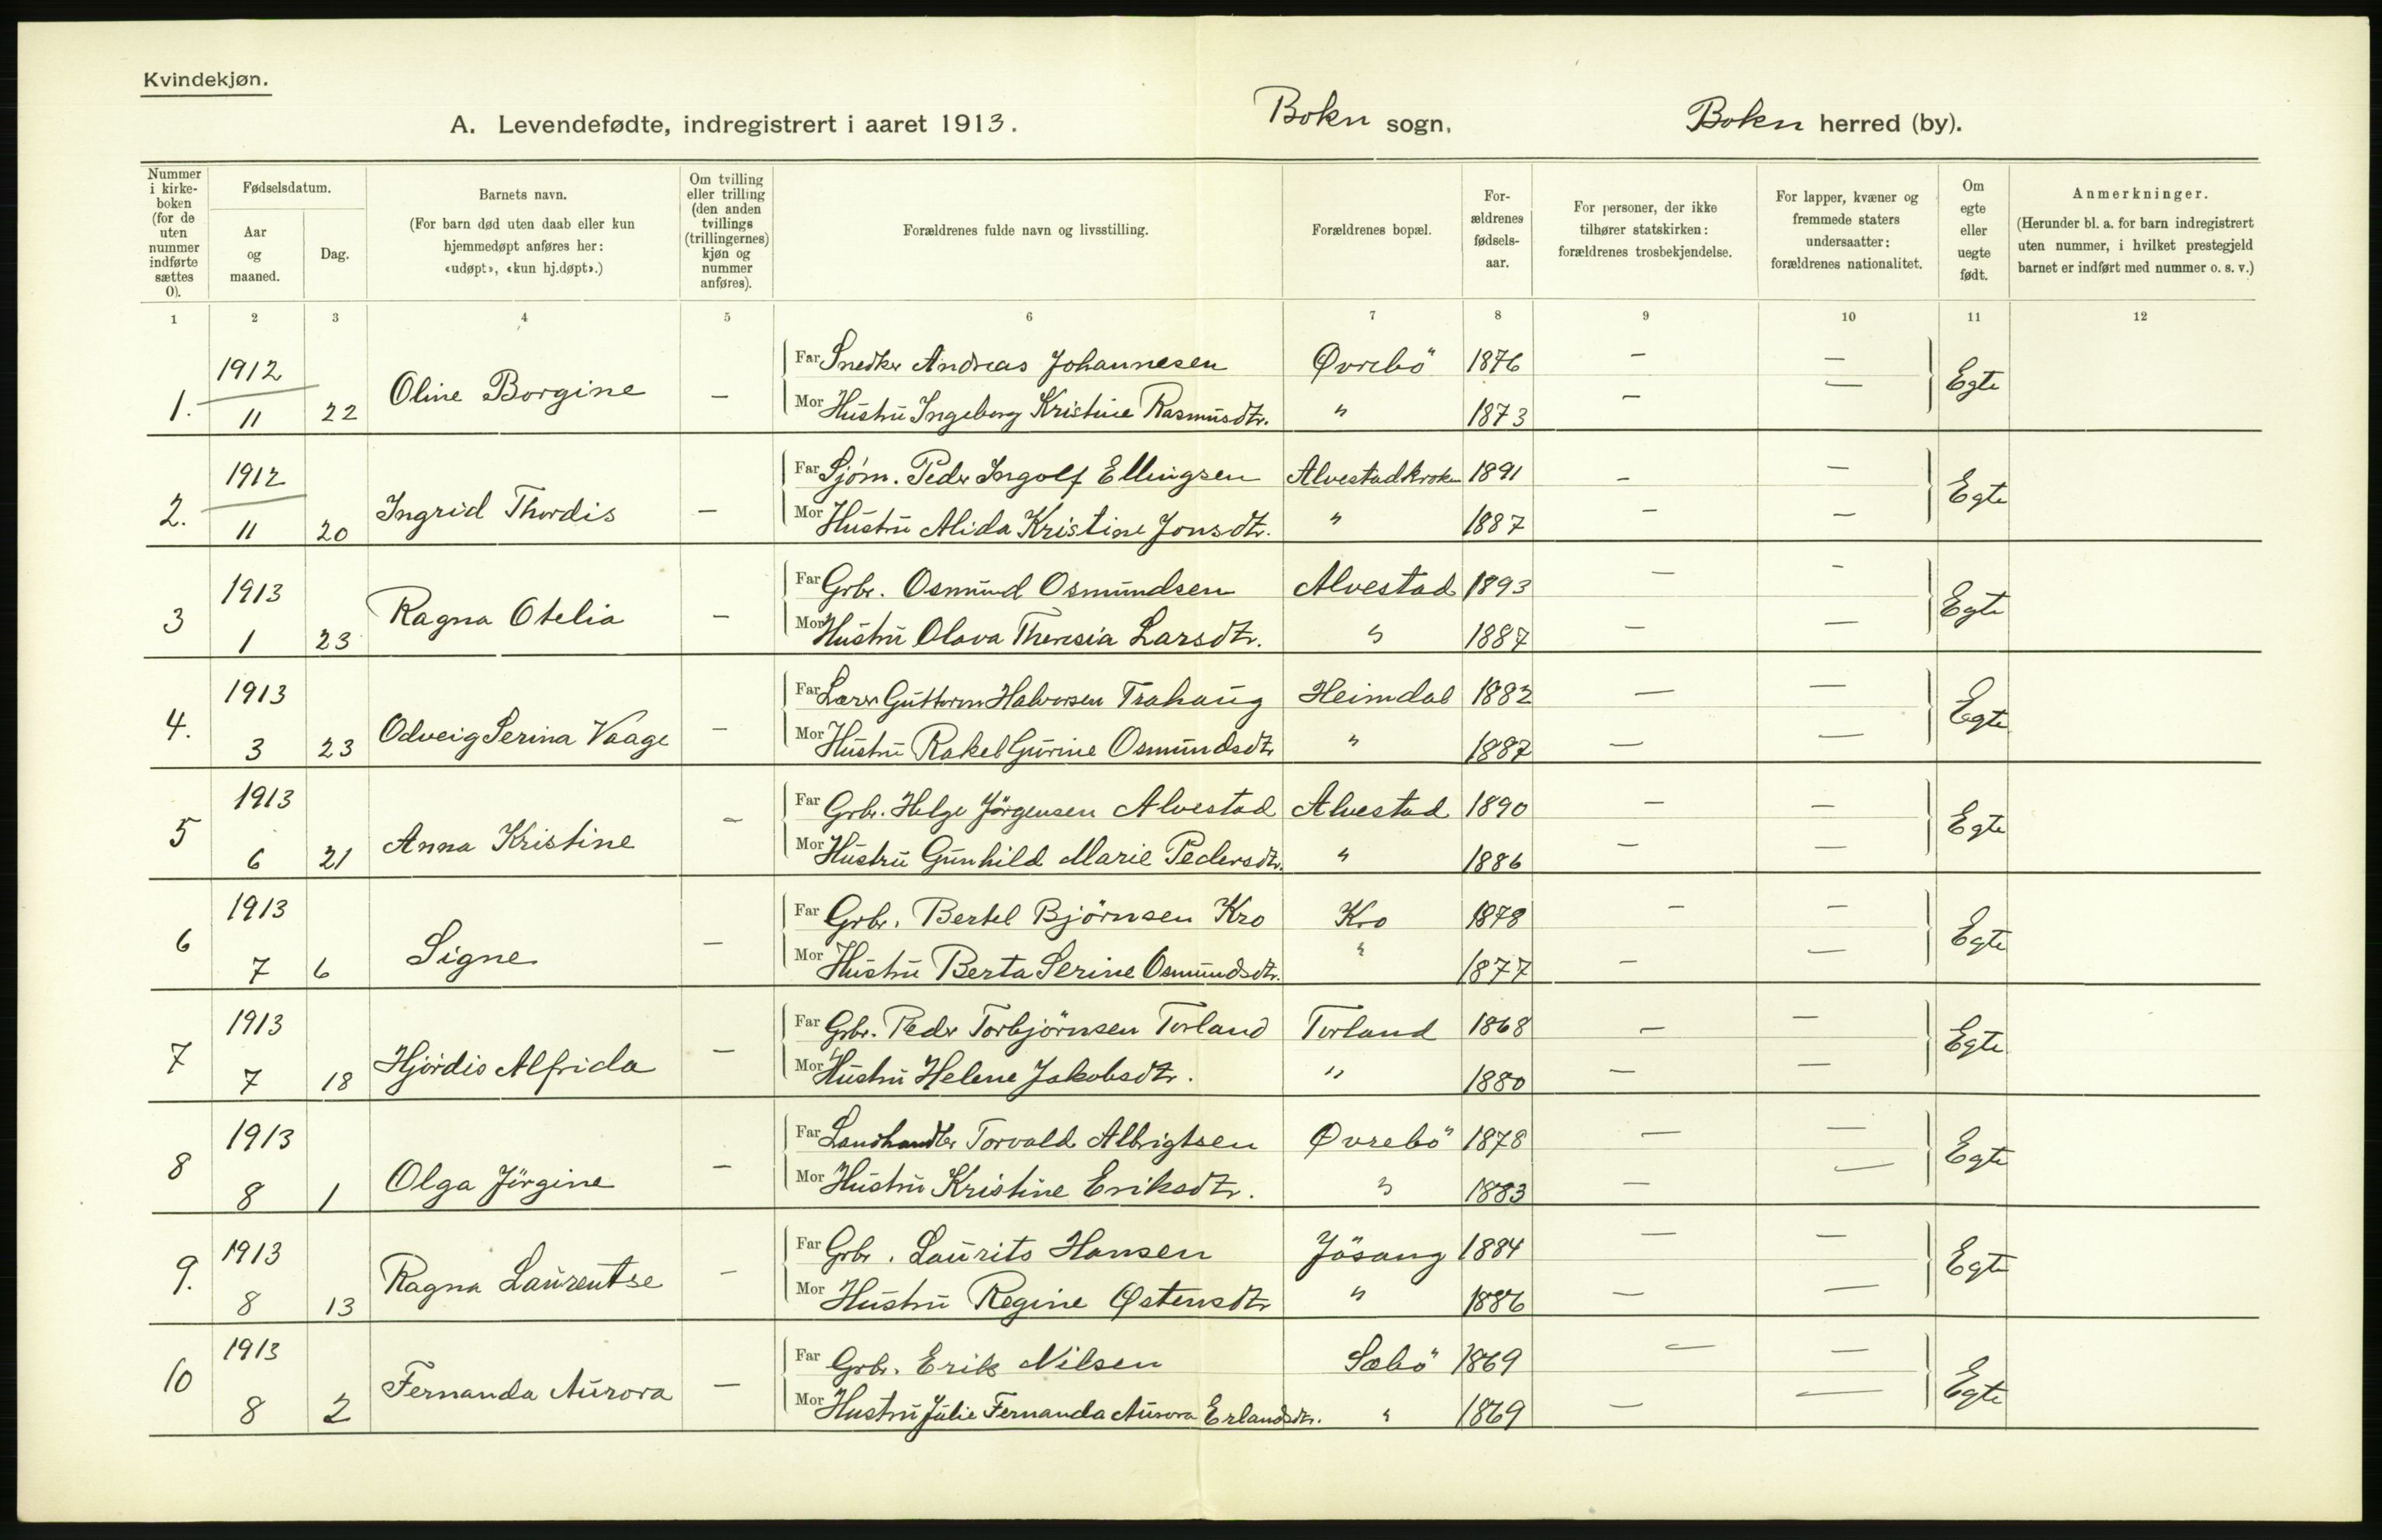 Kvindekjøn.
A. Levendefødte, indregistrert i aaret 1913. Bokn sogn, Bokn herred (by).
Nummer i kirke-boken (for de uten nummer indførte sættes 0).
Fødselsdatum.
Aar og maaned.
Dag.
Barnets navn.
(For barn død uten daab eller kun hjemmedøpt anføres her: «udøpt», «kun hj.døpt».)
Om tvilling eller trilling (den anden tvillings (trillingernes) kjøn og nummer anføres).
Forældrenes fulde navn og livsstilling.
Forældrenes bopæl.
For-ældrenes fødsels-aar.
For personer, der ikke tilhører statskirken: forældrenes trosbekjendelse.
For lapper, kvæner og fremmede staters undersaatter: forældrenes nationalitet.
Om egte eller uegte født.
Anmerkninger.
(Herunder bl. a. for barn indregistrert uten nummer, i hvilket prestegjeld barnet er indført med nummer o. s. v.)
1 2 3 4 5 6 7 8 9 10 11 12
1. 1912 11 22 Oline Borgine — Far Snedker Andreas Johannesen Øvrebö 1876 — — Egte
Mor Hustru Ingeborg Kristine Rasmusdtr. " 1873 — —
2. 1912 11 20 Ingrid Thordis — Far Sjøm. Peder Ingolf Ellingsen Alvestadkroken 1891 — — Egte
Mor Hustru Alida Kristine Jonsdtr. " 1887 — —
3 1913 1 23 Ragna Otelia — Far Grbr. Osmund Osmundsen Alvestad 1893 — — Egte
Mor Hustru Olava Theresia Larsdtr. " 1887 — —
4. 1913 3 23 Odveig Serina Vaage — Far Lærer Guttorm Halvorsen Trahaug Heimdal 1882 — — Egte
Mor Hustru Rakel Gurine Osmundsdtr " 1887 — —
5 1913 6 21 Anna Kristine — Far Grbr. Helge Jörgensen Alvestad Alvestad 1890 — — Egte
Mor Hustru Gunhild Marie Pedersdtr. " 1886 — —
6 1913 7 6 Signe — Far Grbr. Bertel Björnsen Kro Kro 1878 — — Egte
Mor Hustru Berta Serine Osmundsdtr. " 1877 — —
7 1913 7 18 Hjördis Alfrida — Far Grbr. Peder Torbjörnsen Torland Torland 1868 — — Egte
Mor Hustru Helene Jakobsdtr. " 1880 — —
8 1913 8 1 Olga Jörgine — Far Landhandler Torvald Albrigtsen Øvrebö 1878 — — Egte
Mor Hustru Kristine Eriksdtr. " 1883 — —
9. 1913 8 13 Ragna Laurentse — Far Grbr. Laurits Hansen Jösang 1884 — — Egte
Mor Hustru Regine Østensdtr " 1886 — —
10 1913 8 2 Fernanda Aurora — Far Grbr. Erik Nilsen Sæbö 1869 — — Egte
Mor Hustru Julie Fernanda Aurora Erlandsdtr. " 1869 — —